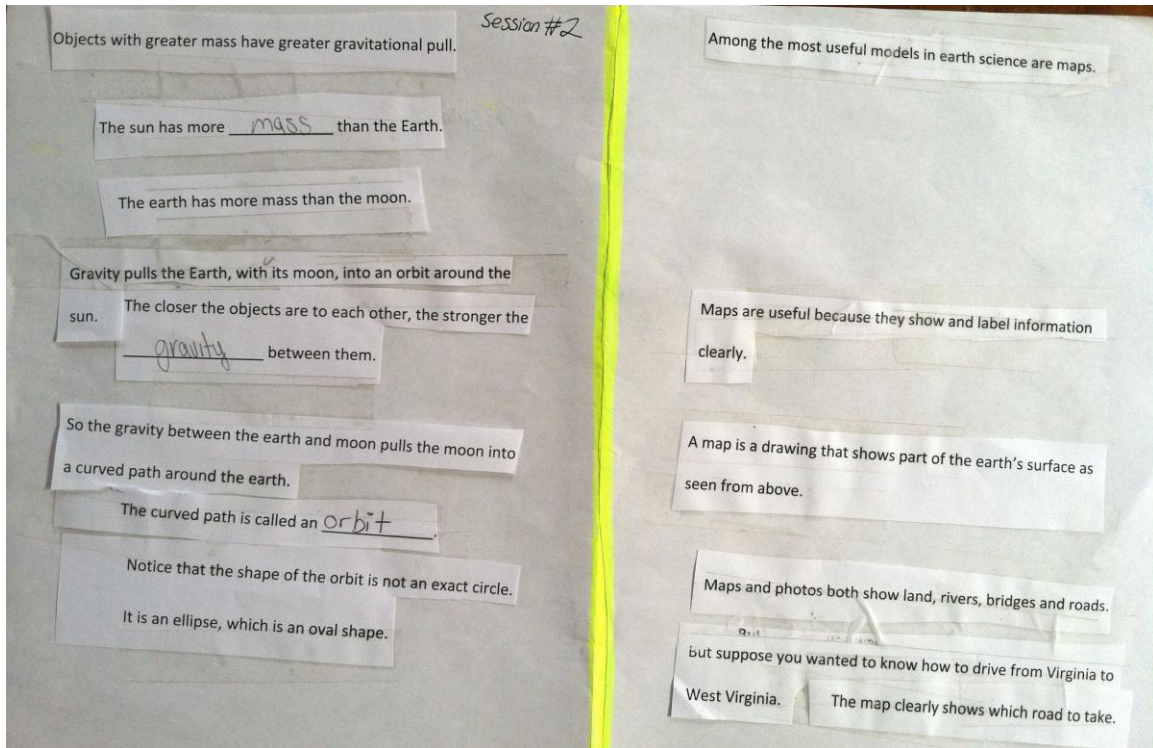 Session #2
Objects with greater mass have greater gravitational pull.
The sun has more mass than the Earth.
The earth has more mass than the moon.
Gravity pulls the Earth, with its moon, into an orbit around the
sun. The closer the objects are to each other, the stronger the
gravity between them.
So the gravity between the earth and moon pulls the moon into
a curved path around the earth.
The curved path is called an orbit.
Notice that the shape of the orbit is not an exact circle.
It is an ellipse, which is an oval shape.
Among the most useful models in earth science are maps.
Maps are useful because they show and label information
clearly.
A map is a drawing that shows part of the earth's surface as
seen from above.
Maps and photos both show land, rivers, bridges and roads.
But suppose you wanted to know how to drive from Virginia to
West Virginia. The map clearly shows which road to take.